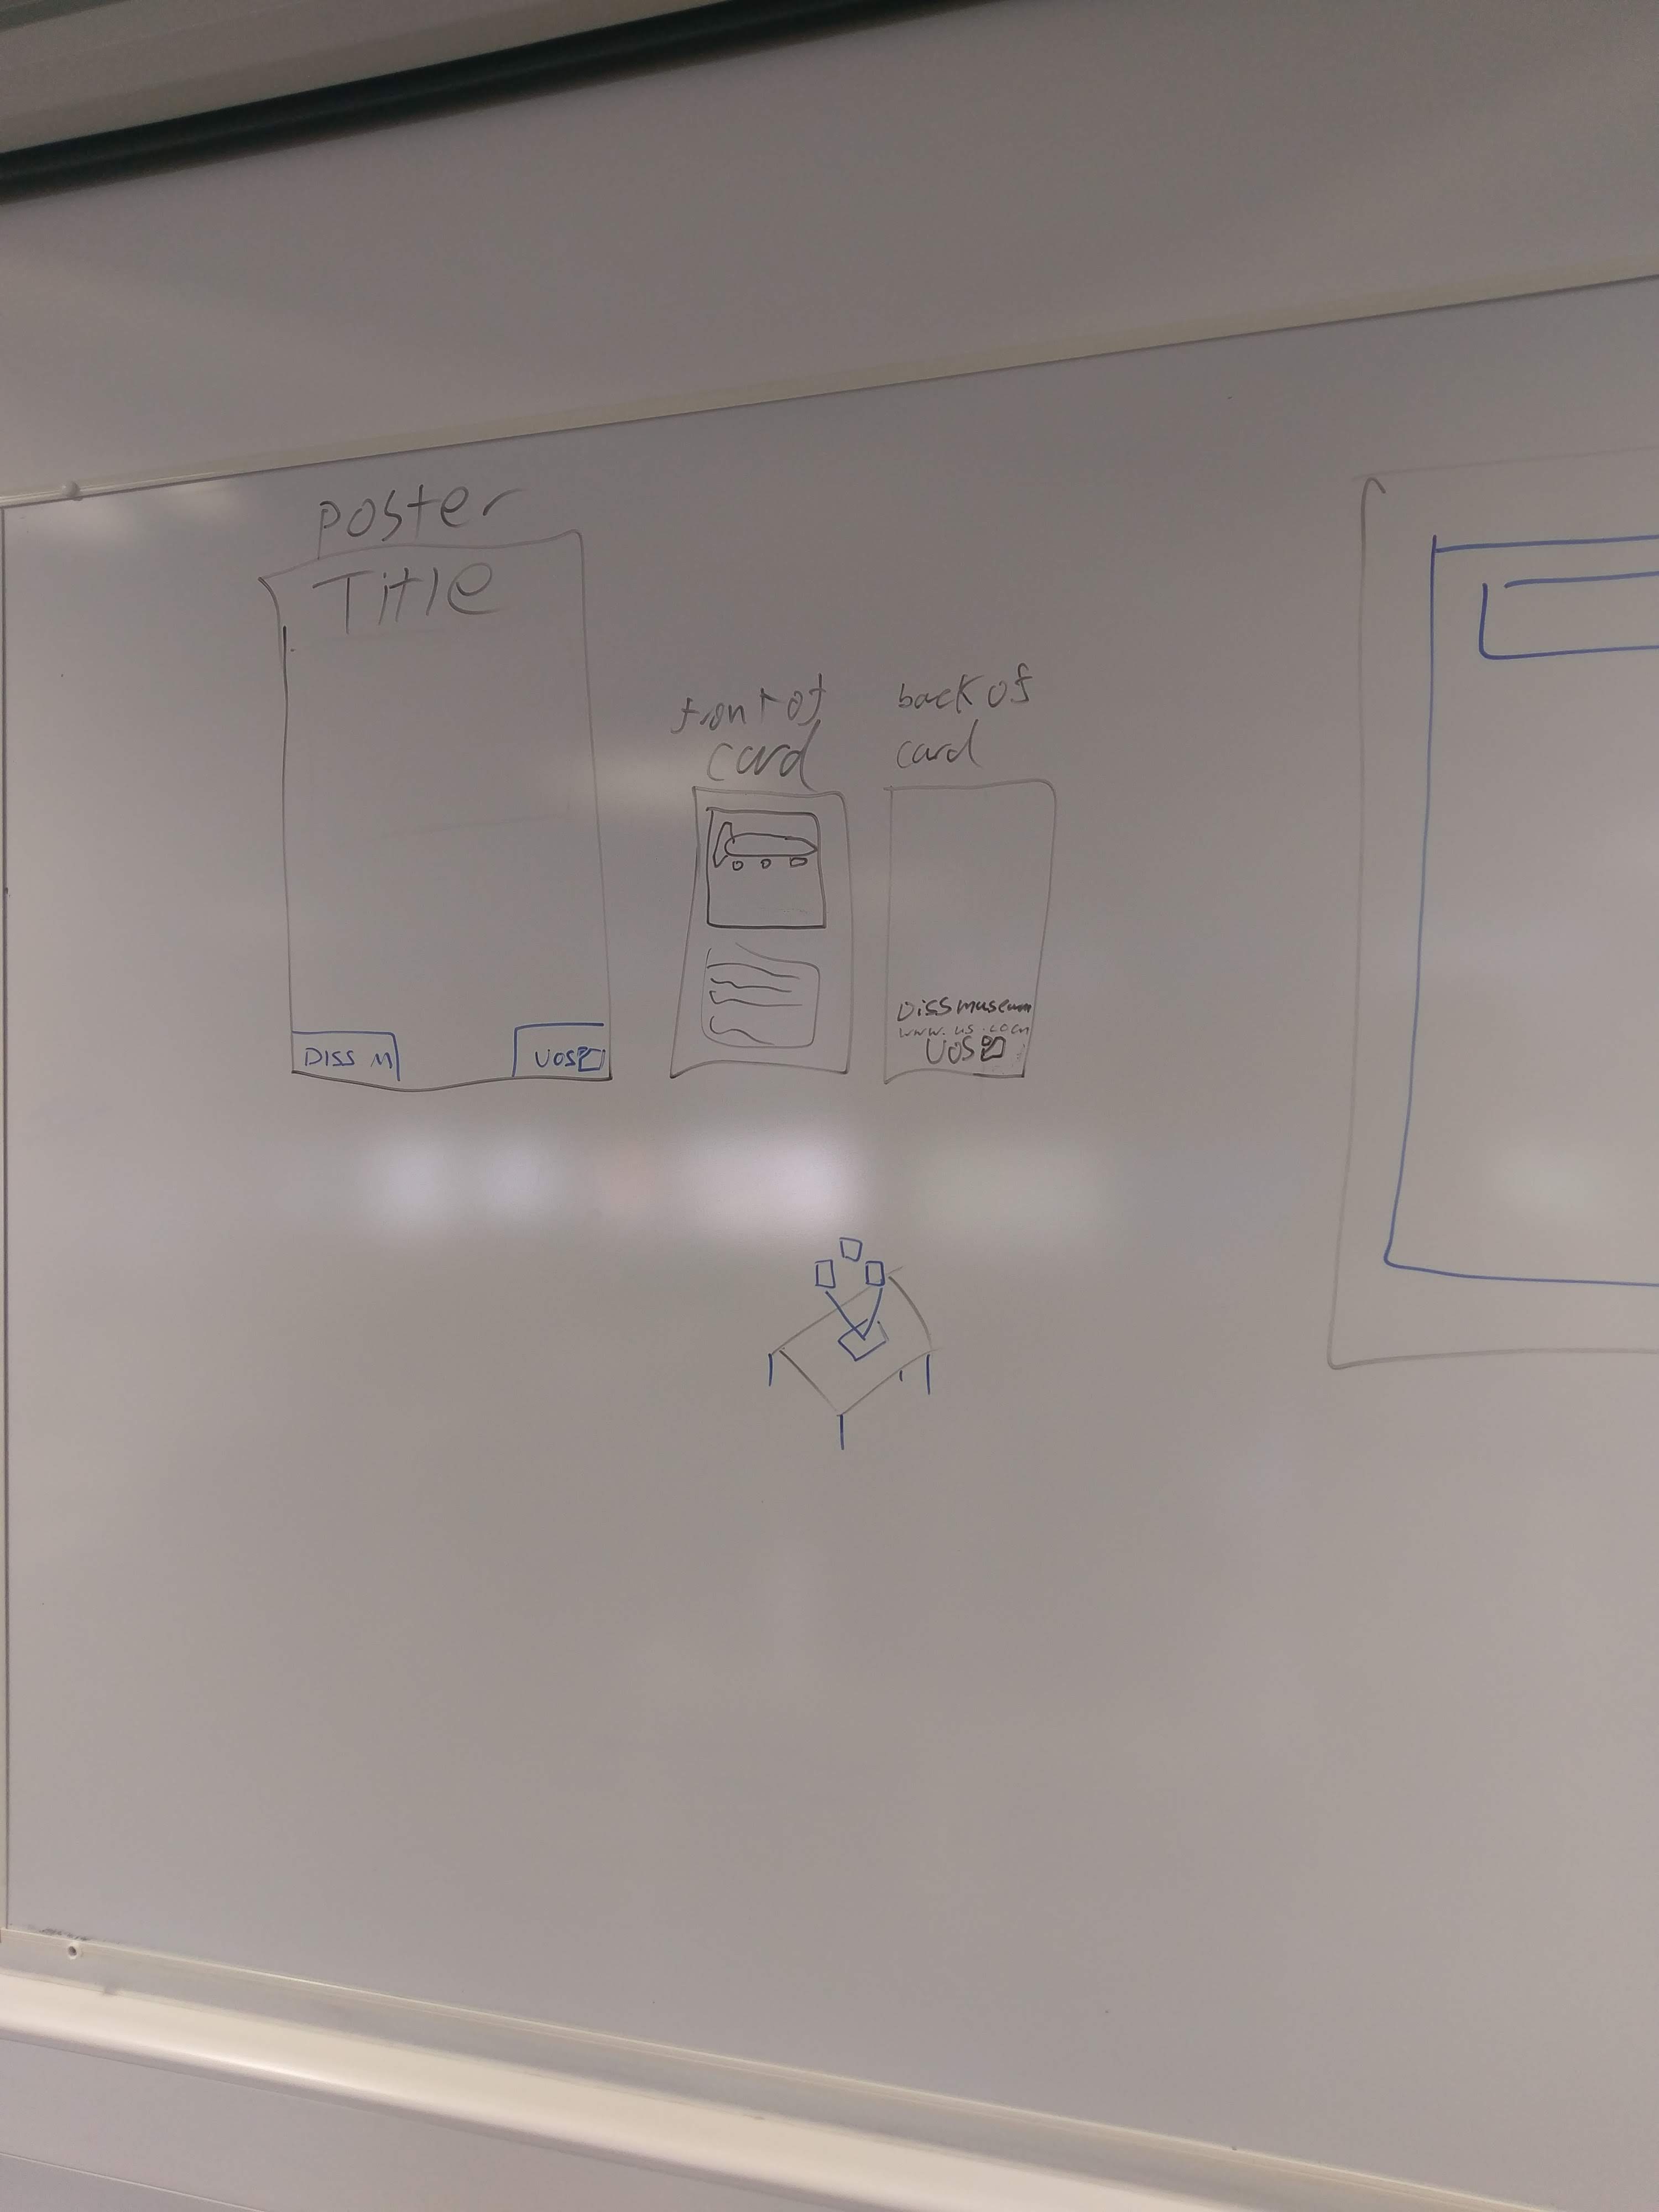 poster
Title
DISS M
UOS
front of
card
back of
card
Diss museum
www.us.com
UOS